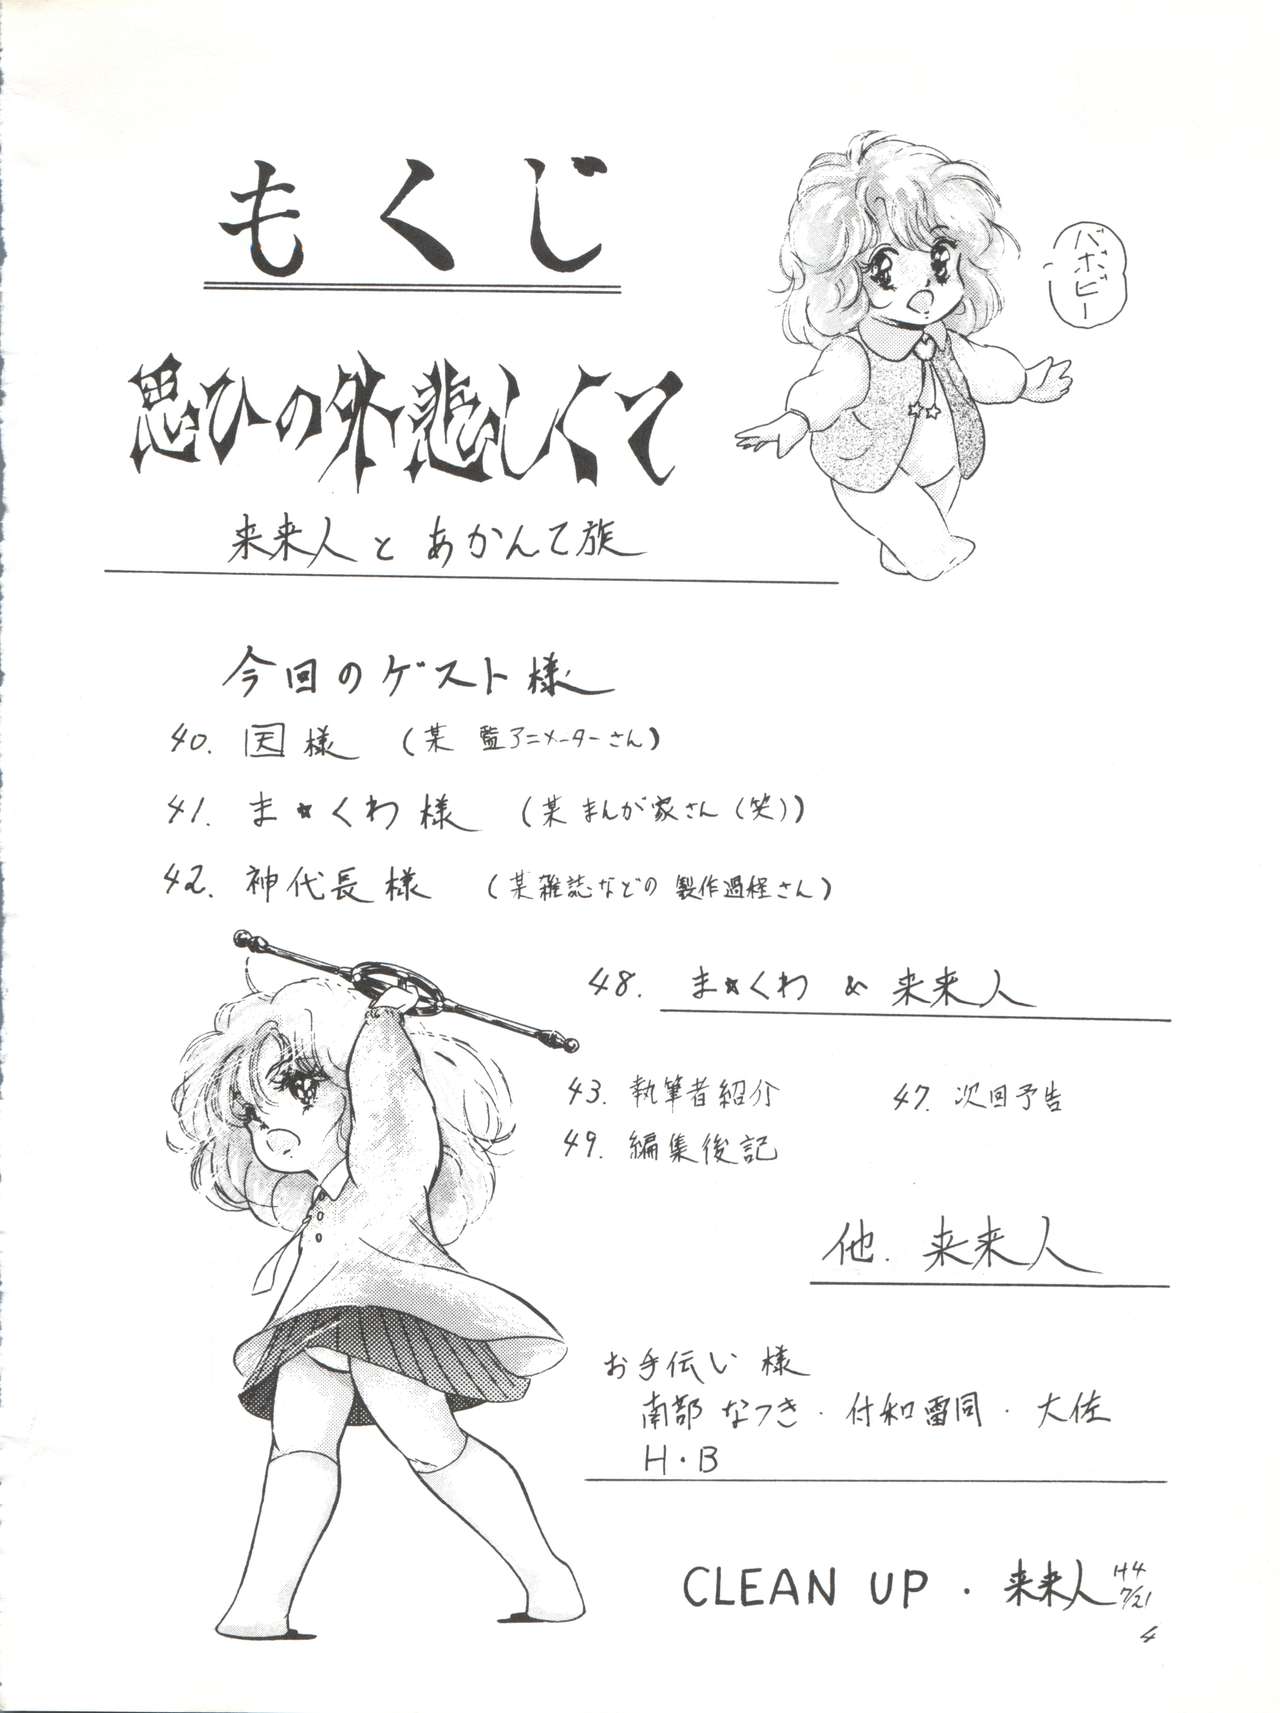 もくじ
バホビー
思ひの外悲しくて
来来人とあかんて族
今回のゲスト様
40. 国様 (某 監アニメーターさん)
41. ま☆くわ様 (某まんが家さん(笑))
42. 神代長様 (某雑誌などの製作過程さん)
48. ま☆くわ & 来来人
43. 執筆者紹介 47. 次回予告
49. 編集後記
他. 来来人
お手伝い様
南部なつき・付和雷同・大佐
H・B
CLEAN UP・来来人 H4 7/21
4